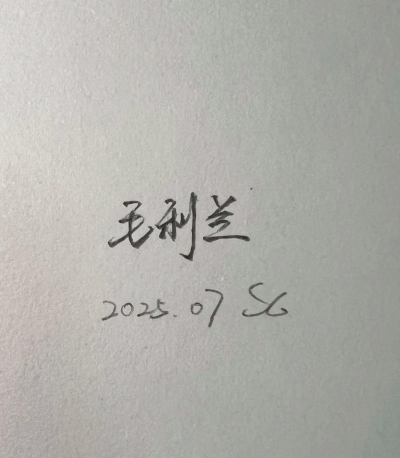 毛利兰
2025.07 SG